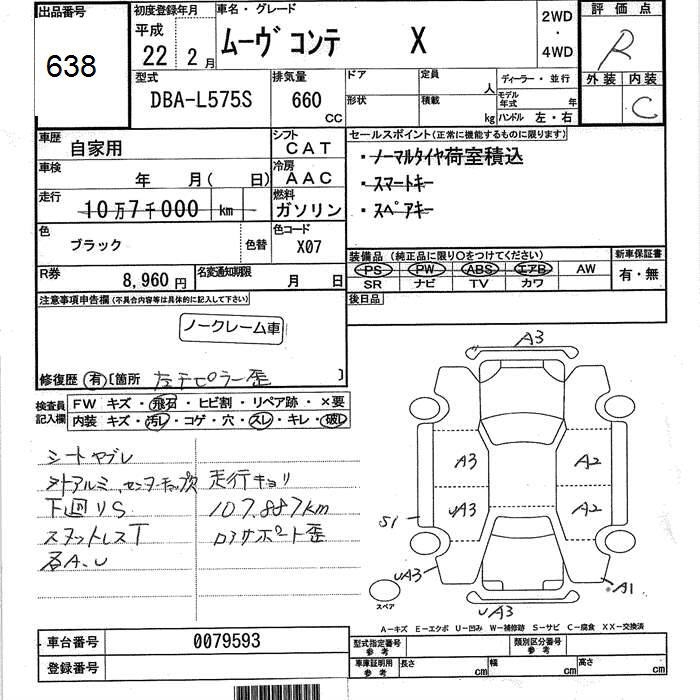 出品番号
638
初度登録年月
平成
22 2月
車名・グレード
ムーヴ コンテ X
2WD
・
4WD
評価点
R
外装 内装
C
型式
DBA-L575S
排気量
660
CC
ドア
定員
人
形状
積載
kg
ディーラー・並行
モデル年式 年
ハンドル 左・右
車歴
自家用
シフト
CAT
車検
年 月( 日)
冷房
AAC
走行
10万7千000 km
燃料
ガソリン
色
ブラック
色替
色コード
X07
R券
8,960円
名変通知期限
月 日
セールスポイント(正常に機能するものに限ります)
・ノーマルタイヤ荷室積込
・スマートキー
・スペアキー
装備品(純正品に限り○をつけてください)
PS PW ABS エアB AW
SR ナビ TV カワ
新車保証書
有・無
後日品
注意事項申告欄(不具合内容等は具体的に記入して下さい)
ノークレーム車
修復歴 有 [箇所 左テピラー歪 ]
検査員
記入欄
FW キズ・飛石・ヒビ割・リペア跡・×要
内装 キズ・汚レ・コゲ・穴・スレ・キレ・破レ
シートヤブレ
下廻りS
スタットレスT
各A、U
走行キョリ
107.887km
コアサポート歪
A3
A3
A2
UA3
A2
S1
UA3
A1
UA3
スペア
A-キズ E-エクボ U-凹み W-補修跡 S-サビ C-腐食 XX-交換済
車台番号
0079593
登録番号
型式指定番号
参考
類別区分番号
参考
車庫証明用
参考
長さ cm
幅 cm
高さ cm